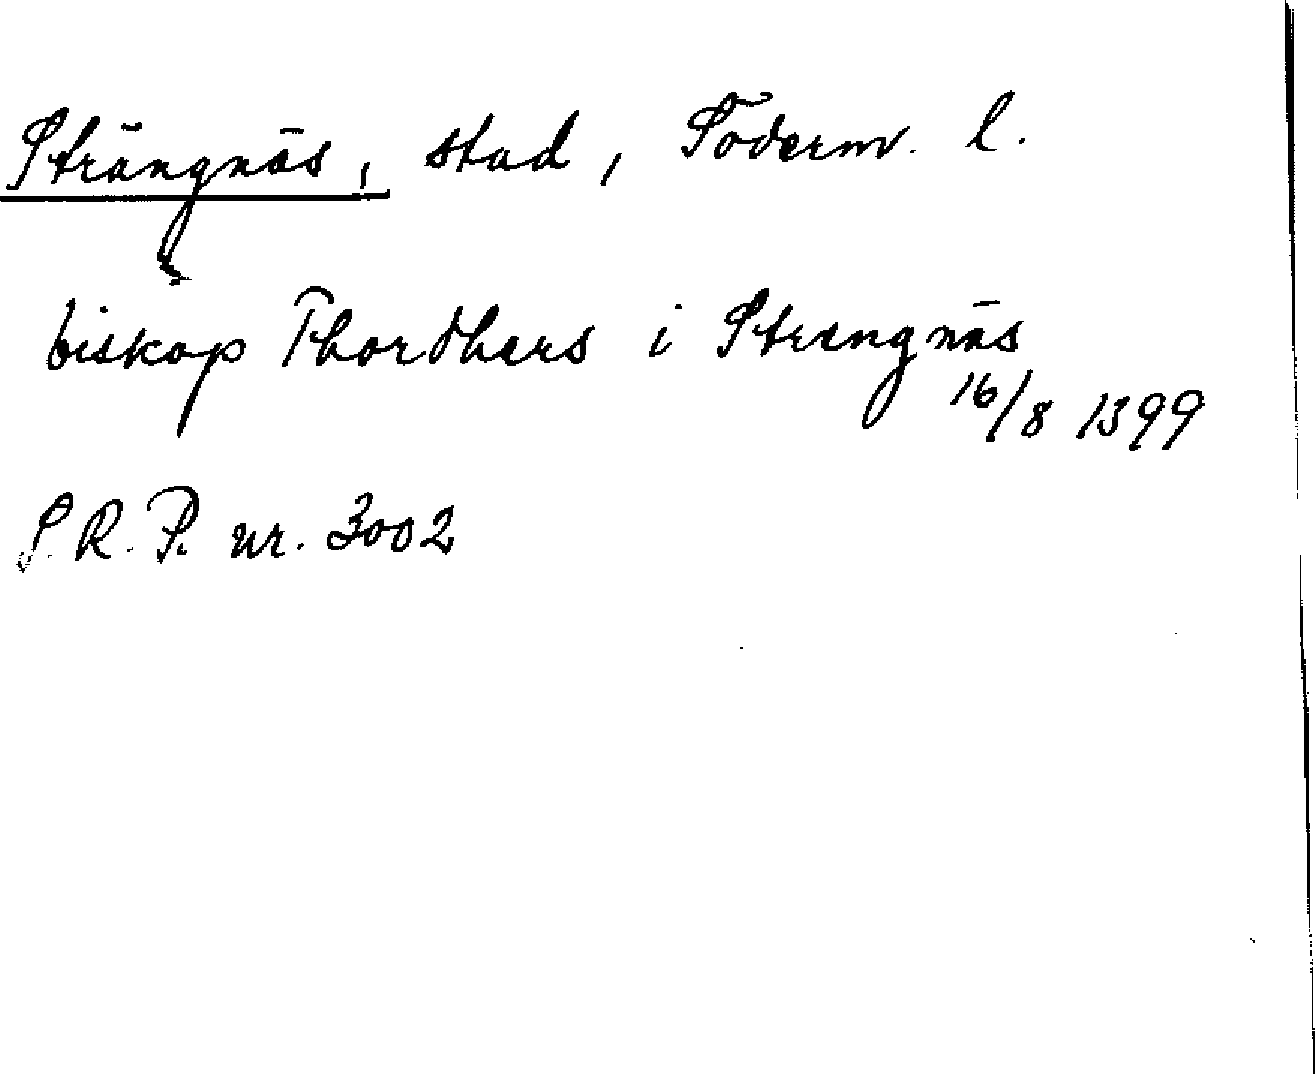 Strängnäs, stad, Söderm. l.
biskop Thordhers i Strengnäs
16/8 1399
S.R.P. nr. 3002